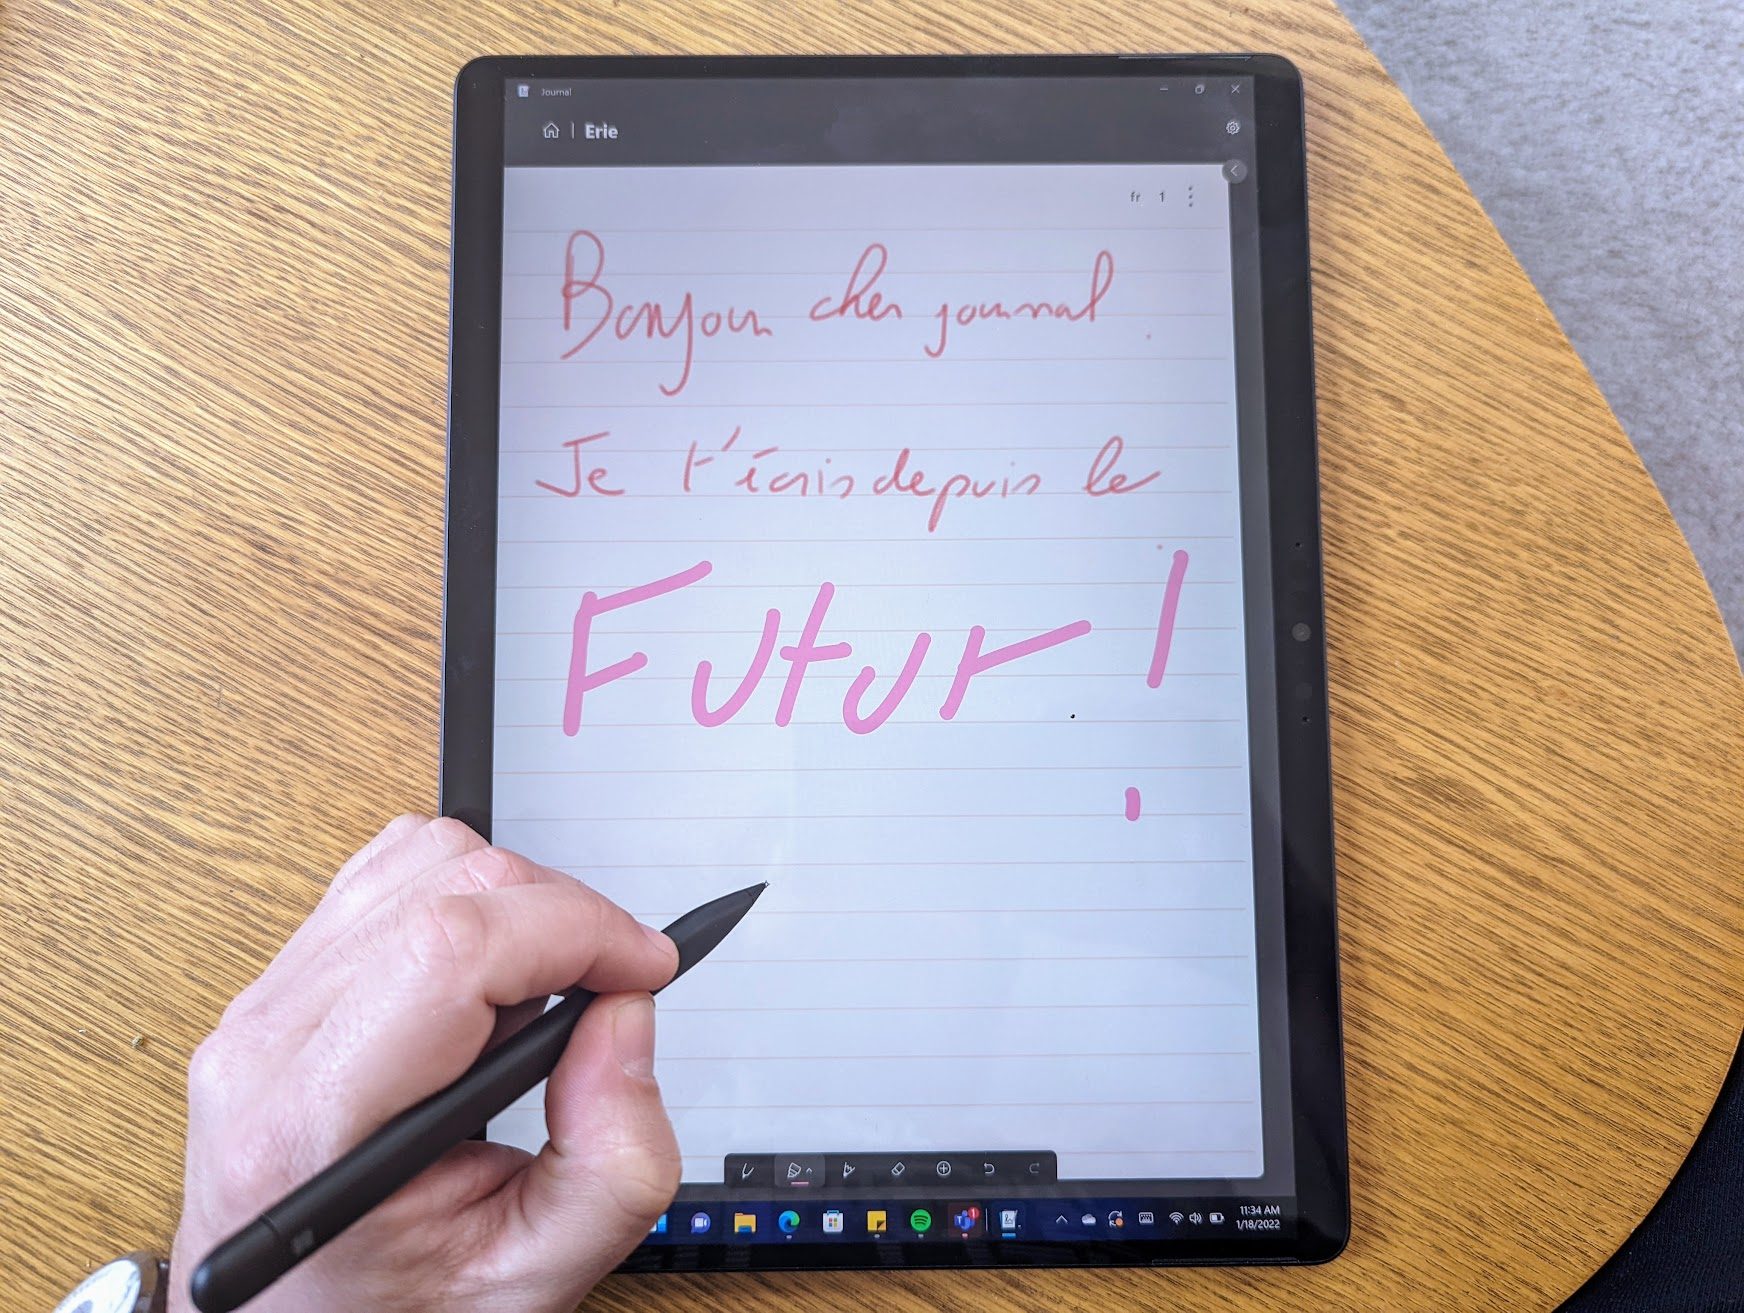 Journal
Erie
fr 1
Bonjour cher journal.
Je t'écris depuis le
Futur !
1
11:34 AM
1/18/2022